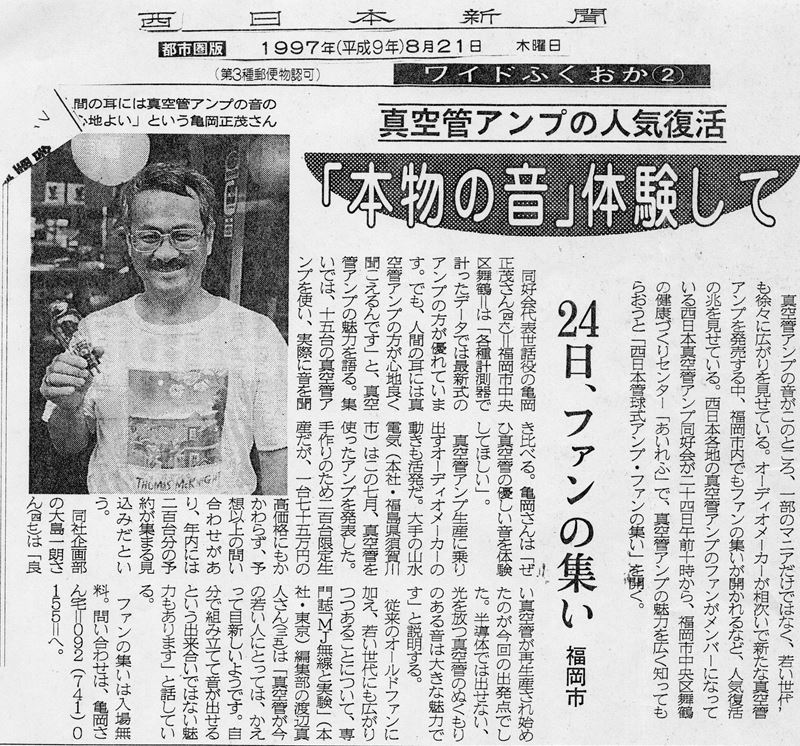 西日本新聞
都市圏版 1997年(平成9年)8月21日 木曜日
(第3種郵便物認可)
ワイドふくおか②
間の耳には真空管アンプの音の
心地よい」という亀岡正茂さん
真空管アンプの人気復活
「本物の音」体験して
真空管アンプの音がこのところ、一部のマニアだけではなく、若い世代
も徐々に広がりを見せている。オーディオメーカーが相次いで新たな真空管
アンプを発売する中、福岡市内でもファンの集いが開かれるなど、人気復活
の兆を見せている。西日本各地の真空管アンプのファンがメンバーになって
いる西日本真空管アンプ同好会が二十四日午前十一時から、福岡市中央区舞鶴
の健康づくりセンター「あいれふ」で、真空管アンプの魅力を広く知っても
らおうと「西日本管球式アンプ・ファンの集い」を開く。
24日、ファンの集い
福岡市
同好会代表世話役の亀岡
正茂さん(四六)=福岡市中央
区舞鶴=は「各種計測器で
計ったデータでは最新式の
アンプの方が優れていま
す。でも、人間の耳には真
空管アンプの方が心地良く
聞こえるんです」と、真空
管アンプの魅力を語る。集
いでは、十五台の真空管ア
ンプを使い、実際に音を聞
き比べる。亀岡さんは「ぜ
ひ真空管の優しい音を体験
してほしい」。
真空管アンプ生産に乗り
出すオーディオメーカーの
動きも活発だ。大手の山水
電気(本社・福島県須賀川
市)はこの七月、真空管を
使ったアンプを発表した。
手作りのため二百台限定生
産だが、一台七十五万円の
高価格にもか
かわらず、予
想以上の問い
合わせがあ
り、年内には
二百台分の予
約が集まる見
込みだとい
う。
同社企画部
の大島一朗さ
ん は「良
い真空管が再生産され始め
たのが今回の出発点でし
た。半導体では出せない、
光を放つ真空管のぬくもり
のある音は大きな魅力で
す」と説明する。
従来のオールドファンに
加え、若い世代にも広がり
つつあることについて、専
門誌「MJ無線と実験」(本
社・東京)編集部の渡辺真
人さん は「真空管が今
の若い人にとっては、かえ
って目新しいようです。自
分で組み立てて音が出せる
という出来合いではない魅
力もあります」と話してい
る。
ファンの集いは入場無
料。問い合わせは、亀岡さ
ん宅=092(741)0
155=へ。
THOMAS MCKNIGHT